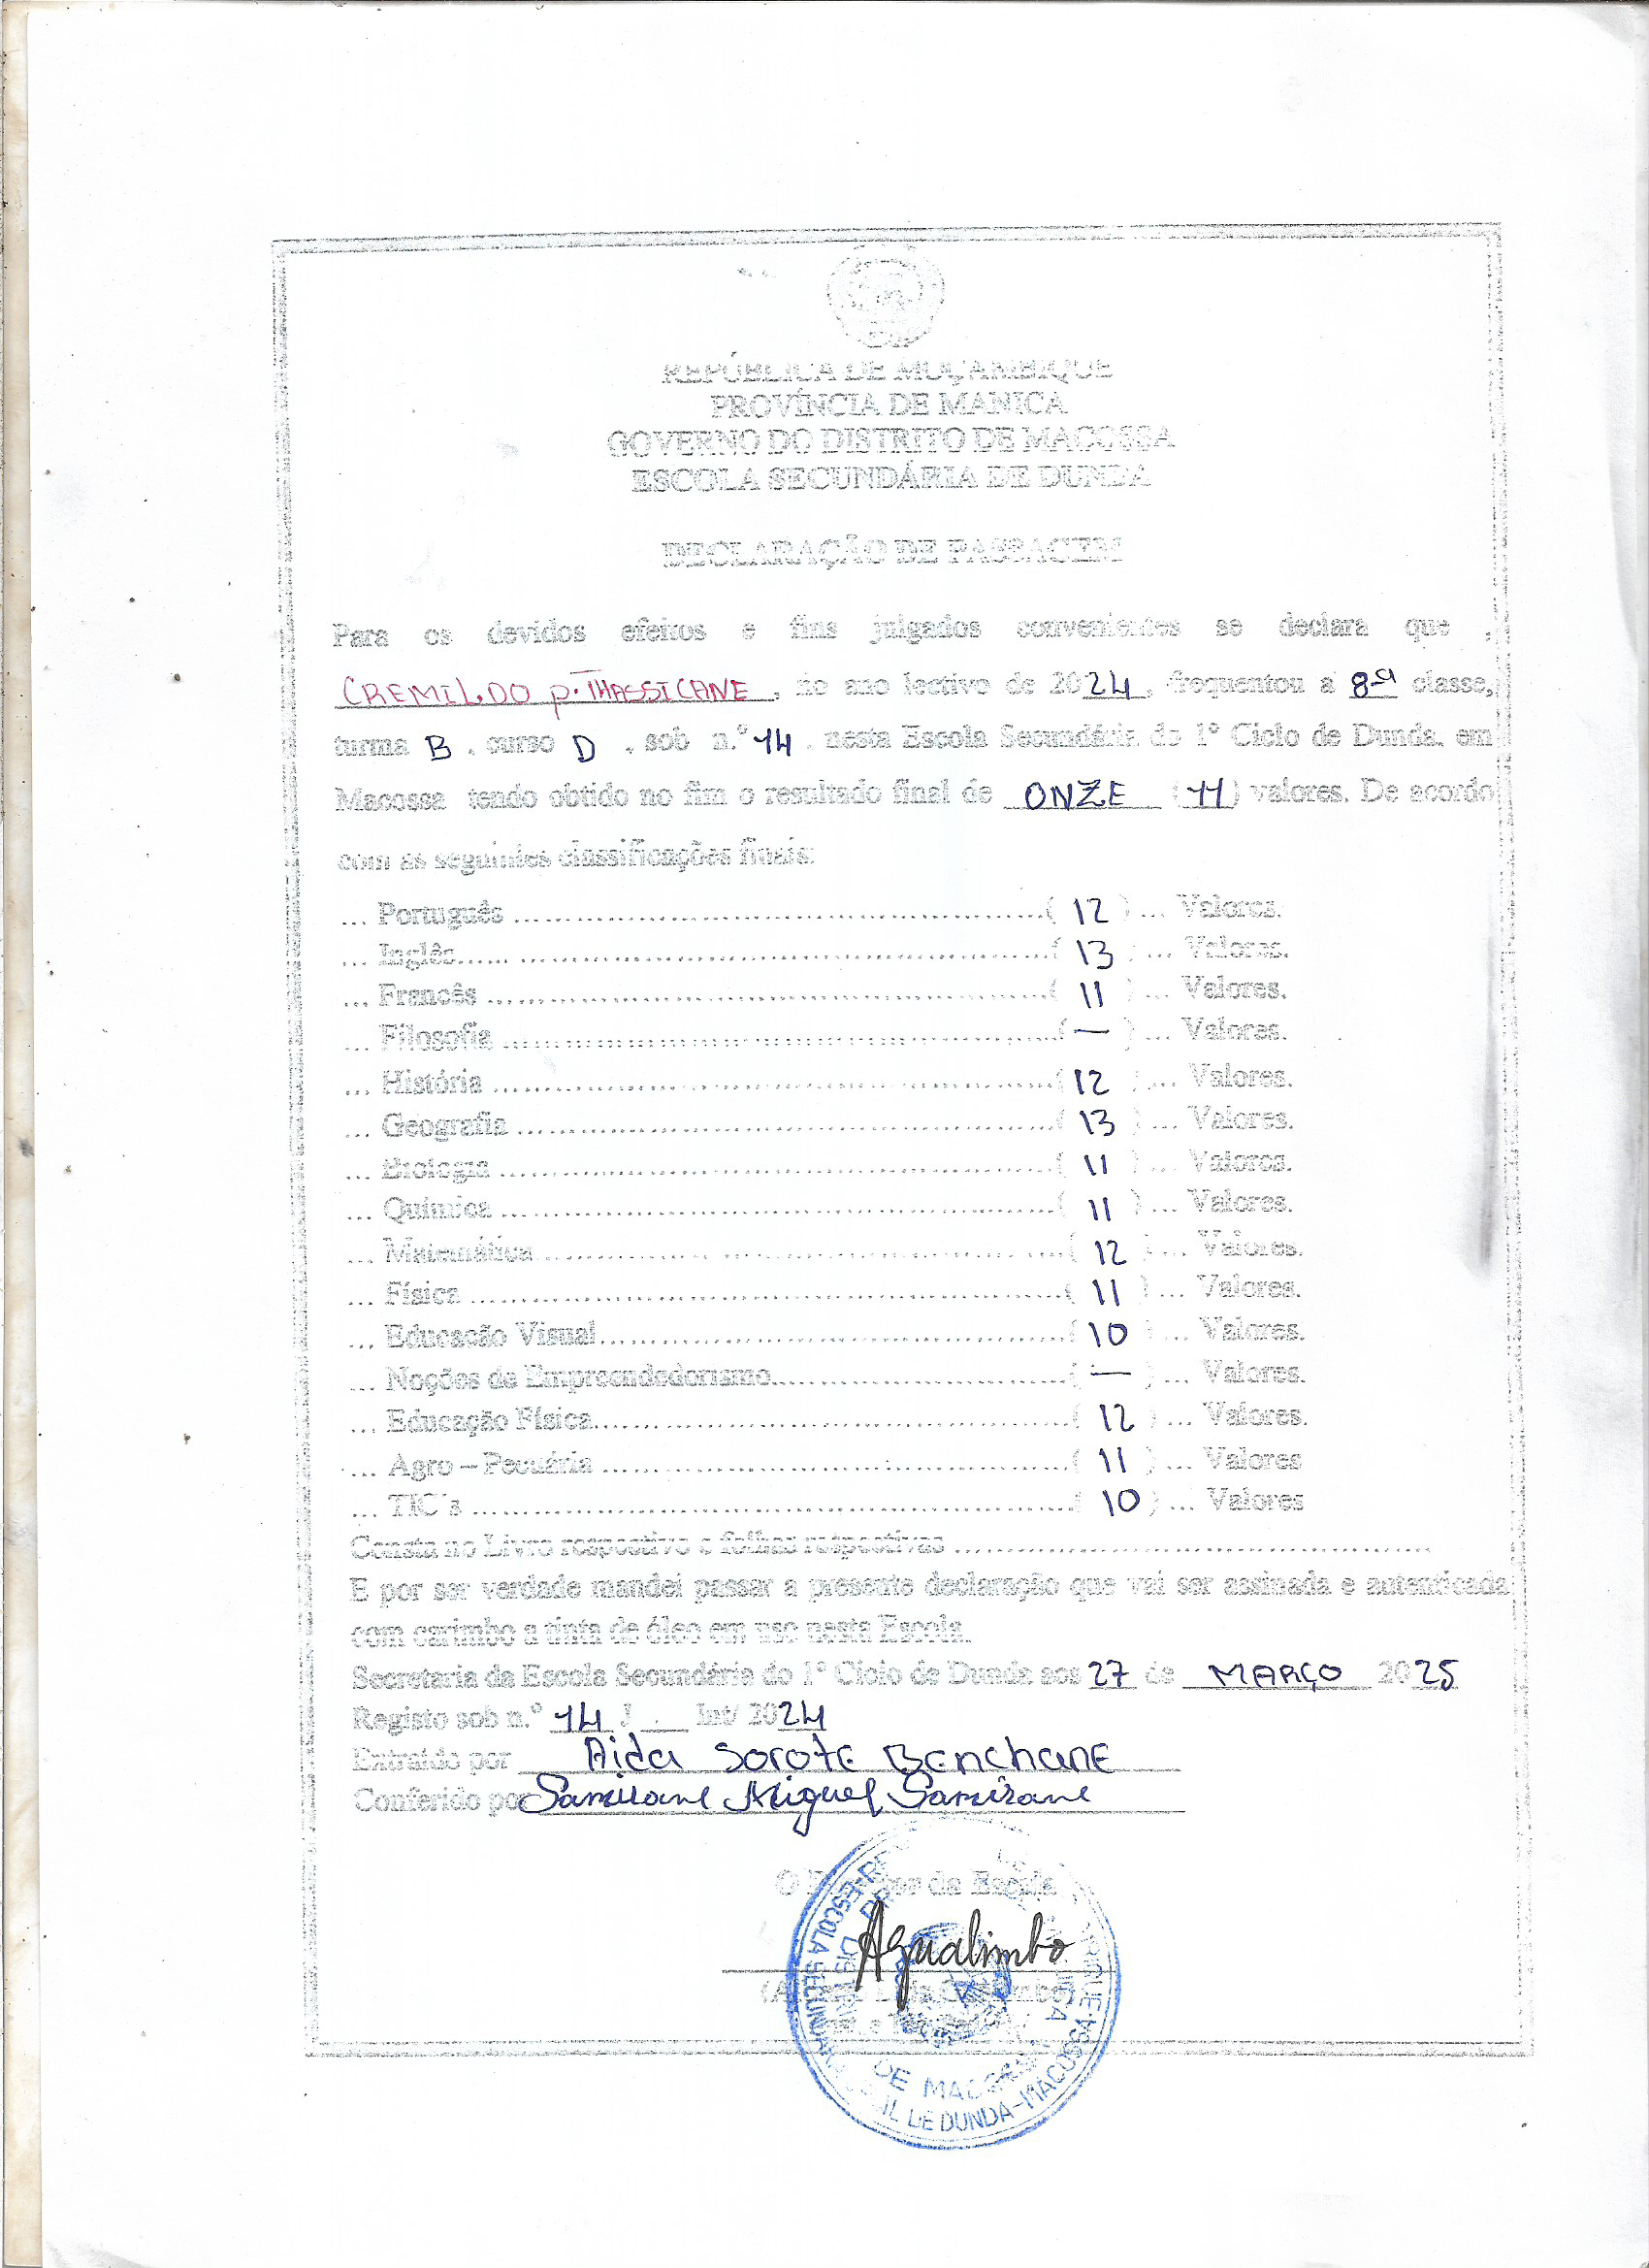 REPÚBLICA DE MOÇAMBIQUE
PROVÍNCIA DE MANICA
GOVERNO DO DISTRITO DE MACOSSA
ESCOLA SECUNDÁRIA DE DUNDA
DECLARAÇÃO DE PASSAGEM
Para os devidos efeitos e fins julgados convenientes se declara que ,
CREMILDO P. , no ano lectivo de 2024, frequentou a 8ª classe,
turma B , curso D , sob n.º 14 , nesta Escola Secundária do 1º Ciclo de Dunda, em
Macossa tendo obtido no fim o resultado final de ONZE (11) valores. De acordo
com as seguintes classificações finais:
... Português ...(12) ... Valores.
... Inglês ...(13) ... Valores.
... Francês ...(11) ... Valores.
... Filosofia ...(—) ... Valores.
... História ...(12) ... Valores.
... Geografia ...(13) ... Valores.
... Biologia ...(11) ... Valores.
... Química ...(11) ... Valores.
... Matemática ...(12) ... Valores.
... Física ...(11) ... Valores.
... Educação Visual ...(10) ... Valores.
... Noções de Empreendedorismo ...(—) ... Valores.
... Educação Física ...(12) ... Valores.
... Agro – Pecuária ...(11) ... Valores
... TIC's ...(10) ... Valores
Consta no Livro respectivo e folhas respectivas ...
E por ser verdade mandei passar a presente declaração que vai ser assinada e autenticada
com carimbo a tinta de óleo em uso nesta Escola.
Secretaria da Escola Secundária do 1º Ciclo de Dunda aos 27 de MARÇO 2025
Registo sob n.º 14 / Int/ 2024
Extraído por Aida Sorote Benchane
Conferido por Miguel
da Escola
Agualimbo
DE MACOSSA
ESCOLA DE DUNDA-MACOSSA